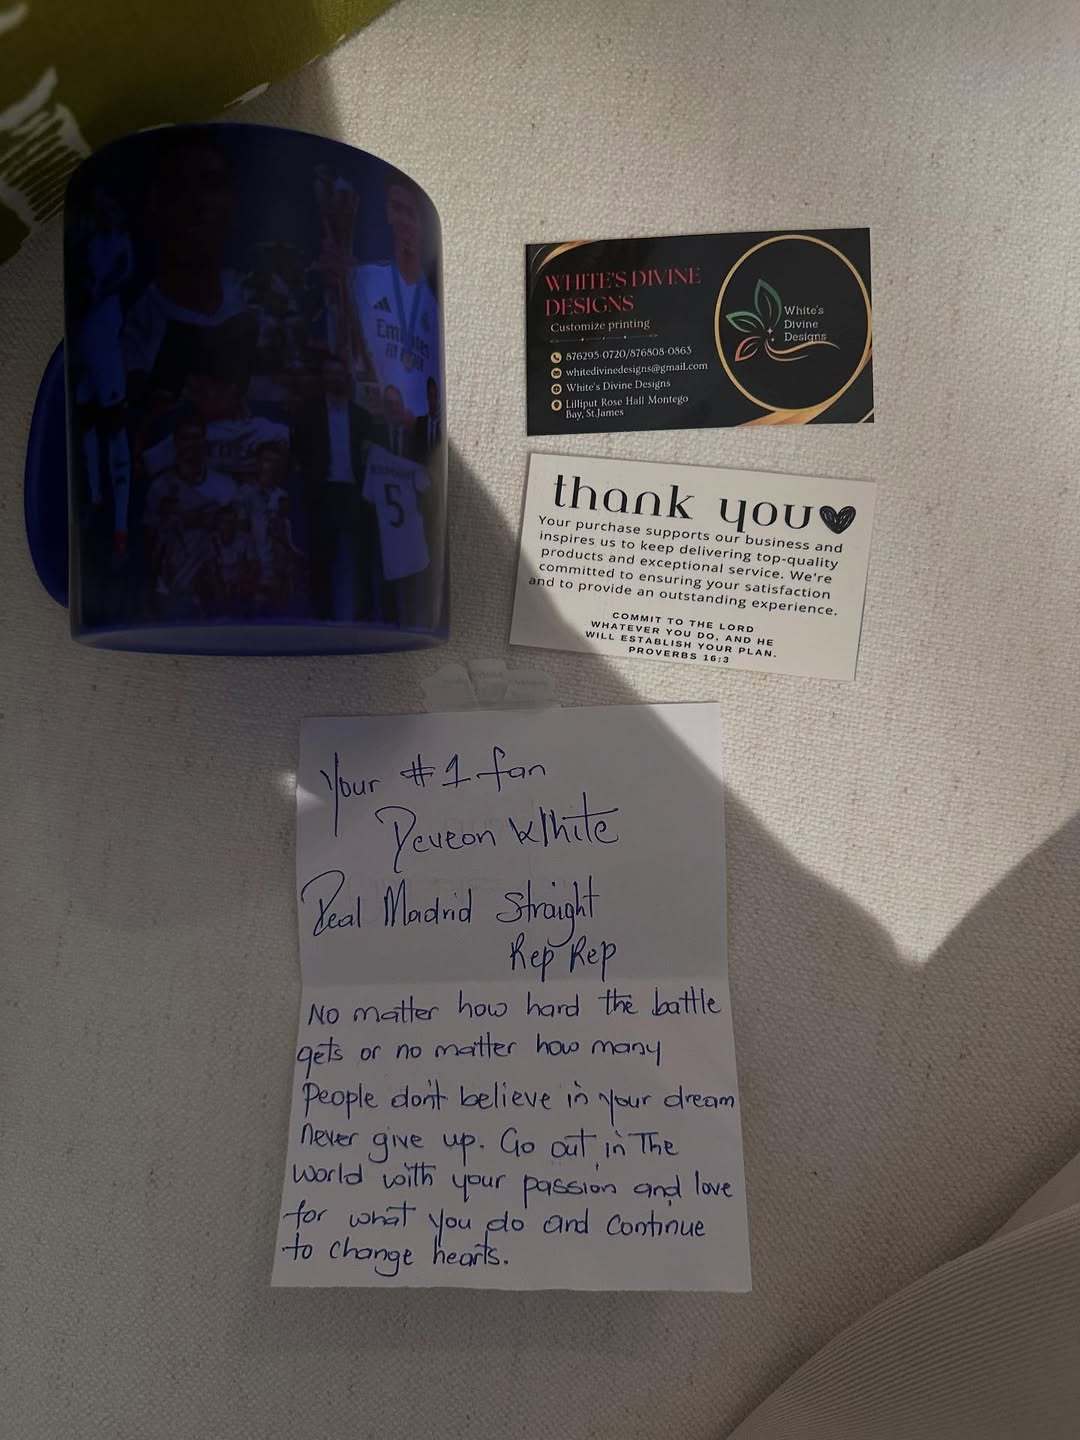 Emirates
5
WHITE'S DIVINE
DESIGNS
Customize printing
876295-0720/876808-0863
whitedivinedesigns@gmail.com
White's Divine Designs
Lilliput Rose Hall Montego
Bay, St.James
White's
Divine
Designs
thank you
Your purchase supports our business and
inspires us to keep delivering top-quality
products and exceptional service. We're
committed to ensuring your satisfaction
and to provide an outstanding experience.
COMMIT TO THE LORD
WHATEVER YOU DO, AND HE
WILL ESTABLISH YOUR PLAN.
PROVERBS 16:3
Your #1 fan
Deveon White
Real Madrid Straight
Rep Rep
No matter how hard the battle
gets or no matter how many
People don't believe in your dream
never give up. Go out in The
world with your passion and love
for what you do and continue
to change hearts.